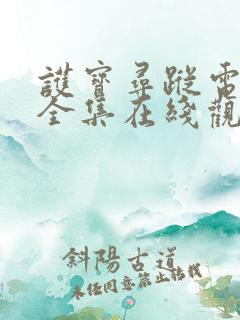 護寶尋蹤電
全集在綫觀
斜陽古道
未經同意禁止轉載